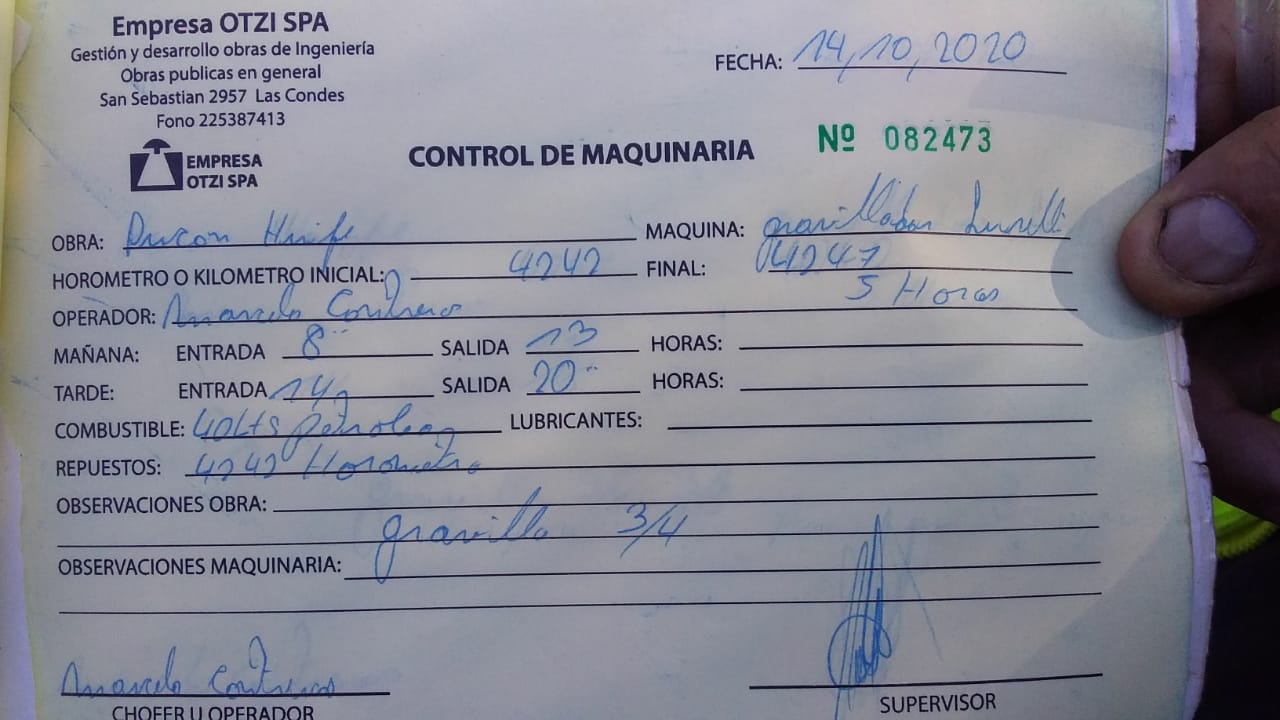 Empresa OTZI SPA
Gestión y desarrollo obras de Ingeniería
Obras publicas en general
San Sebastian 2957 Las Condes
Fono 225387413
EMPRESA
OTZI SPA
FECHA: 14,10,2020
CONTROL DE MAQUINARIA
Nº 082473
OBRA: Pucon Huife MAQUINA: gravilladora
HOROMETRO O KILOMETRO INICIAL: 4242 FINAL: 4247
5 Horas
OPERADOR: Marcelo Contreras
MAÑANA: ENTRADA 8 SALIDA 13 HORAS:
TARDE: ENTRADA 14 SALIDA 20 HORAS:
COMBUSTIBLE: 40Lts petroleo LUBRICANTES:
REPUESTOS: 4242 Horometro
OBSERVACIONES OBRA:
gravilla 3/4
OBSERVACIONES MAQUINARIA:
Marcelo Contreras
CHOFER U OPERADOR
SUPERVISOR